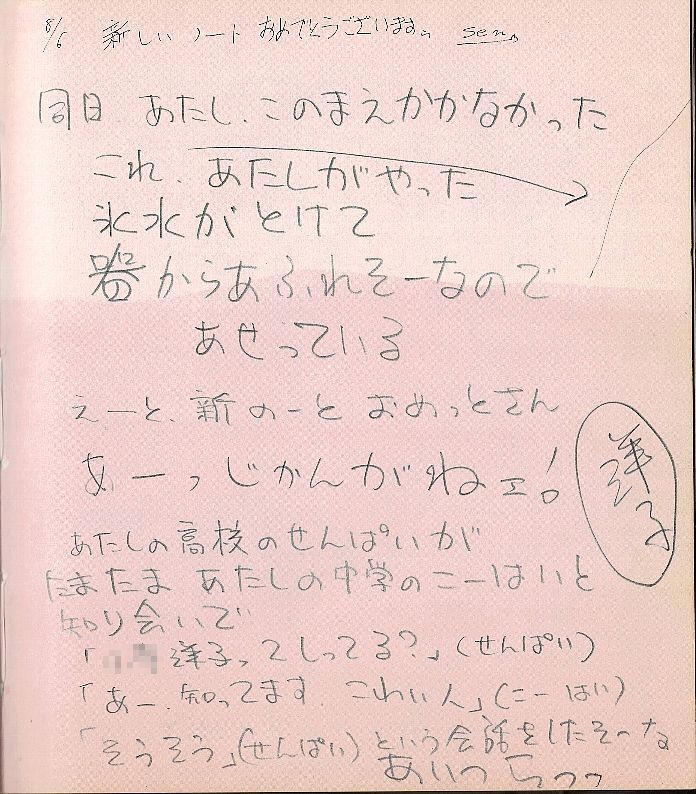 8/6 新しいノートおめでとうございます。sen。
同日 あたし、このまえかかなかった
これ、あたしがやった
氷水がとけて
器からあふれそーなので
あせっている
えーと、新のーとおめっとさん
あーっじかんがねェ!
洋子
あたしの高校のせんぱいが
たまたまあたしの中学のこーはいと
知り会いで
「洋子ってしってる?」(せんぱい)
「あー、知ってます こわい人」(こーはい)
「そうそう」(せんぱい)という会話をしたそーな
あいつらっっ